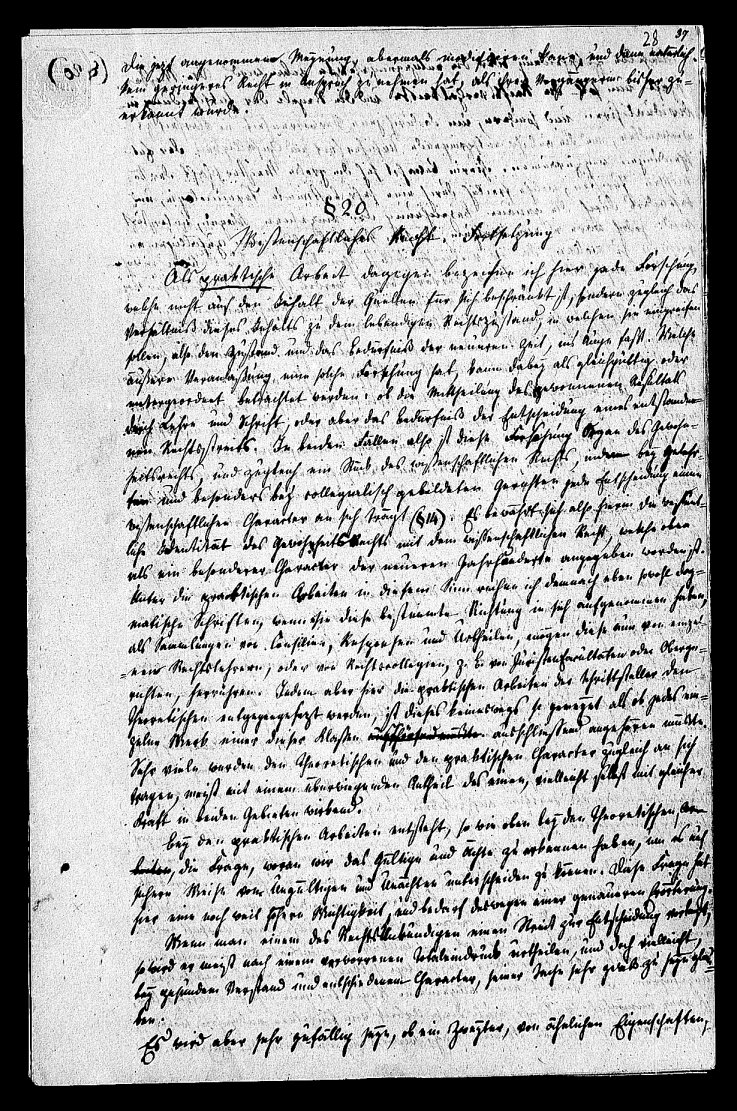 28 37
die jetzt angenommene Meynung abermals modificiren kann, und dann natürlich
kein geringeres Recht in Anspruch zu nehmen hat, als ihren Vorgängerinn bisher zu-
erkannt wurde.
§ 20
Wissenschaftliches Recht. Fortsetzung
Als praktische Arbeit dagegen bezeichne ich hier jede Forschung,
welche nicht auf den Inhalt der Quellen für sich beschränkt ist, sondern zugleich das
Verhältniß dieses Inhalts zu dem lebendigen Rechtszustand, in welchen sie eingreifen
sollen, also den Zustand und das Bedürfniß der neueren Zeit, ins Auge faßt. Welche
äußere Veranlassung eine solche Forschung hat, kann dabey als gleichgültig oder
untergeordnet betrachtet werden: ob die Mittheilung des gewonnenen Resultats
durch Lehre und Schrift, oder aber das Bedürfniß der Entscheidung eines entstande-
nen Rechtsstreits. In beiden Fällen also ist diese Forschung Organ des Gewohn-
heitsrechts, und zugleich ein Stück des wissenschaftlichen Rechts, indem bey Gelehr-
ten und besonders bey collegialisch gebildeten Gerichten jede Entscheidung einen
wissenschaftlichen Character an sich trägt (§ 14). Es bewährt sich also hierin die wesent-
liche Identität des Gewohnheitsrechts mit dem wissenschaftlichen Recht, welche oben
als ein besonderer Character der neueren Jahrhunderte angegeben worden ist.
Unter die praktischen Arbeiten in diesem Sinn rechne ich demnach eben sowohl dog-
matische Schriften, wenn sie diese bestimmte Richtung in sich aufgenommen haben,
als Sammlungen von Consilien, Responsen und Urtheilen, mögen diese nun von einzel-
nen Rechtslehrern, oder von Rechtscollegien, z. B. von Juristenfacultäten oder Oberge-
richten, herrühren. Indem aber hier die praktischen Arbeiten der Schriftsteller den
theoretischen entgegengesetzt werden, ist dieses keineswegs so gemeynt als ob jedes ein-
zelne Werk einer dieser Klassen ausschließend angehören müßte.
Sehr viele werden den theoretischen und den praktischen Character zugleich an sich
tragen, meist mit einem überwiegenden Antheil des einen, vielleicht selbst mit gleicher
Kraft in beiden Gebieten wirkend.
Bey den praktischen Arbeiten entsteht, so wie oben bey den theoretischen,
die Frage, woran wir das Gültige und Ächte zu erkennen haben, um es auf
sichere Weise vom Ungültigen und Unächten unterscheiden zu können. Diese Frage hat
hier eine noch weit höhere Wichtigkeit, und bedarf deswegen einer genaueren Erörterung.
Wenn man einem des Rechts Unkundigen einen Streit zur Entscheidung vorlegt,
so wird er meist nach einem verworrenen Totaleindruck urtheilen, und doch vielleicht,
bey gesundem Verstand und entschiedenem Character, seiner Sache sehr gewiß zu seyn glau-
ben.
Es wird aber sehr zufällig seyn, ob ein Zweyter, von ähnlichen Eigenschaften,